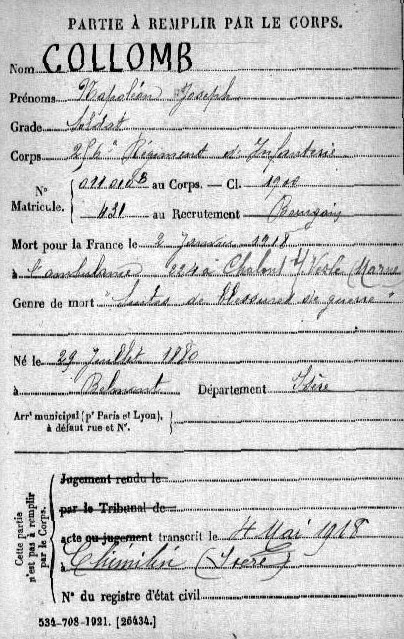 PARTIE À REMPLIR PAR LE CORPS.
Nom COLLOMB
Prénoms Napoléon Joseph
Grade soldat
Corps Régiment d'Infanterie
N° Matricule. au Corps. — Cl. 1900
431 au Recrutement Bourgoin
Mort pour la France le 2 Janvier 1918
à l'ambulance à Chalons s/ Vesle (Marne
Genre de mort "Suites de blessures de guerre"
Né le 29 Juillet 1880
à Belmont Département Isère
Arr<sup>t</sup> municipal (p<sup>r</sup> Paris et Lyon),
à défaut rue et N°.
Cette partie n'est pas à remplir par le Corps.
Jugement rendu le
par le Tribunal de
acte ou jugement transcrit le 4 Mai 1918
à Chimilin (Isère)
N° du registre d'état civil
534-708-1921. [26434.]